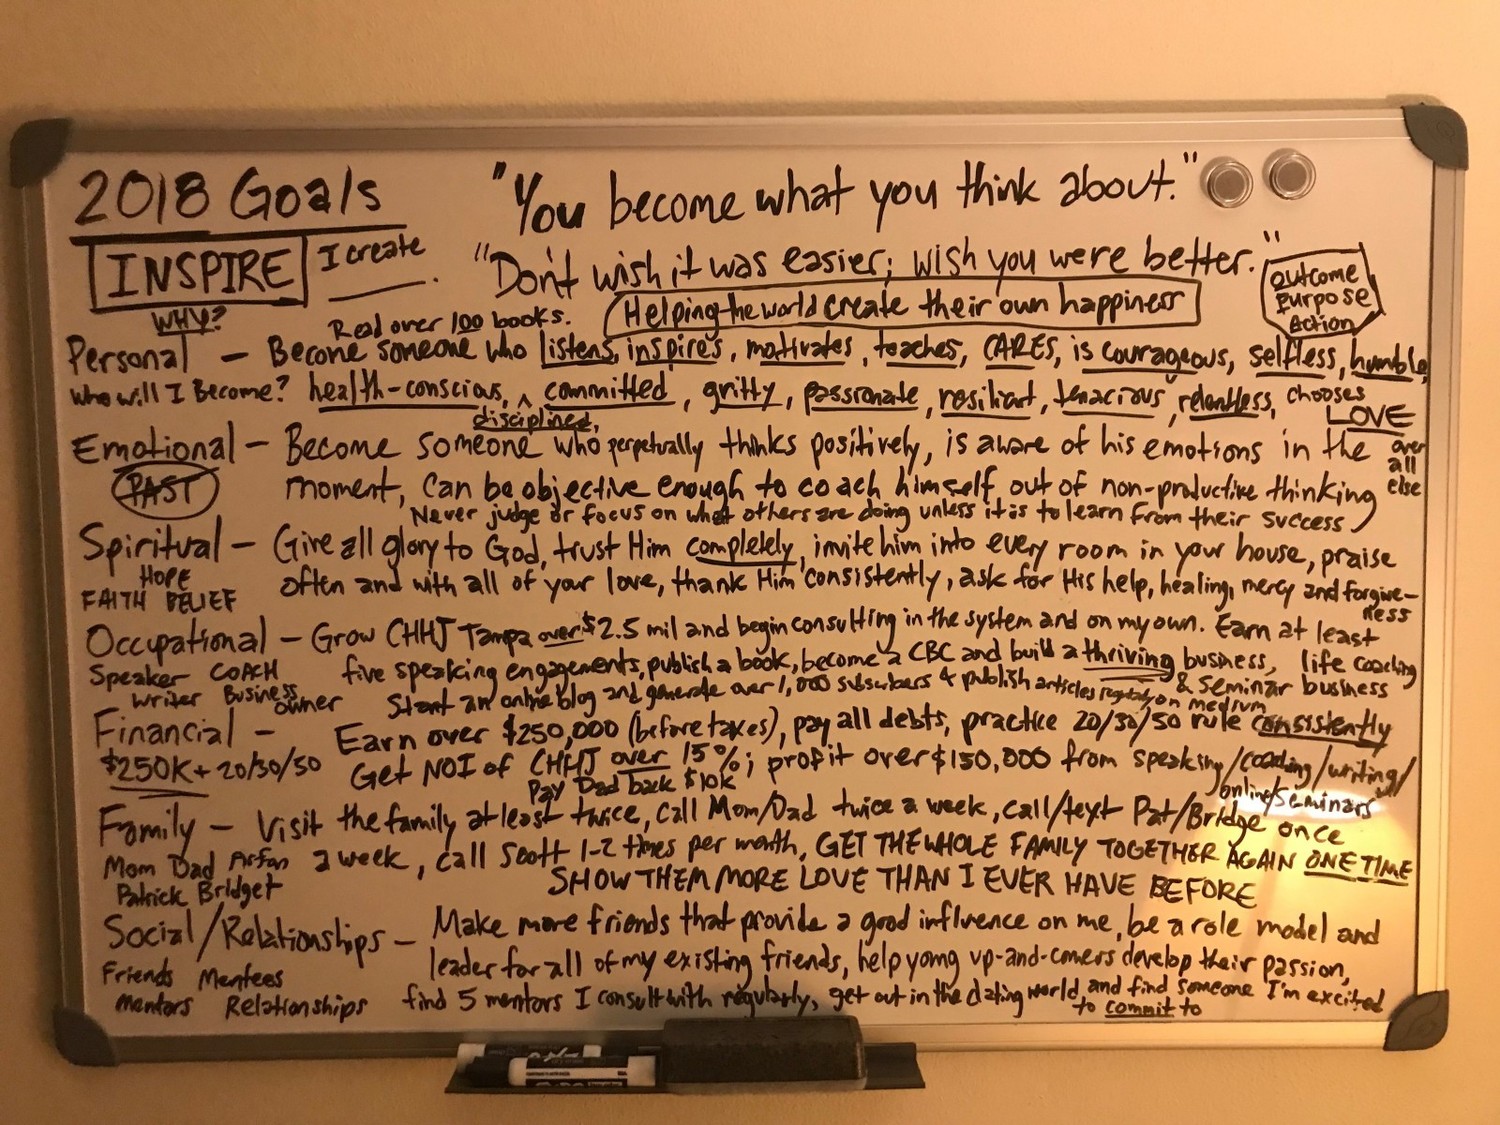 2018 Goals
"You become what you think about."
INSPIRE
I create
"Don't wish it was easier; wish you were better."
Outcome
Purpose
Action
Helping the world create their own happiness
WHY?
Read over 100 books.
Personal - Become someone who listens, inspires, motivates, teaches, CARES, is courageous, selfless, humble,
Who will I Become? health-conscious, ^ committed, gritty, passionate, resiliant, tenacious, relentless, chooses
disciplined,
LOVE
over
all
else
Emotional - Become someone who perpetually thinks positively, is aware of his emotions in the
PAST
moment, can be objective enough to coach himself out of non-productive thinking
Never judge or focus on what others are doing unless it is to learn from their success
Spiritual - Give all glory to God, trust Him completely, invite him into every room in your house, praise
HOPE
often and with all of your love, thank Him consistently, ask for His help, healing, mercy and forgive-
ness
FAITH BELIEF
Occupational - Grow CHHJ Tampa over $2.5 mil and begin consulting in the system and on my own. Earn at least
Speaker COACH
five speaking engagements, publish a book, become a CBC and build a thriving business, life coaching
& seminar business
Writer Business
owner
Start an online blog and generate over 1,000 subscribers & publish articles regularly on medium
Financial - Earn over $250,000 (before taxes), pay all debts, practice 20/30/50 rule consistently
$250K+ 20/30/50
Get NOI of CHHJ over 15%; profit over $150,000 from speaking/coaching/writing/
online/seminars
Pay Dad back $10K
Family - Visit the family at least twice, call Mom/Dad twice a week, call/text Pat/Bridge once
Mom Dad
a week, call Scott 1-2 times per month, GET THE WHOLE FAMILY TOGETHER AGAIN ONE TIME
Patrick Bridget
SHOW THEM MORE LOVE THAN I EVER HAVE BEFORE
Social/Relationships - Make more friends that provide a good influence on me, be a role model and
Friends Mentees
leader for all of my existing friends, help young up-and-comers develop their passion,
Mentors Relationships
find 5 mentors I consult with regularly, get out in the dating world and find someone I'm excited
to commit to